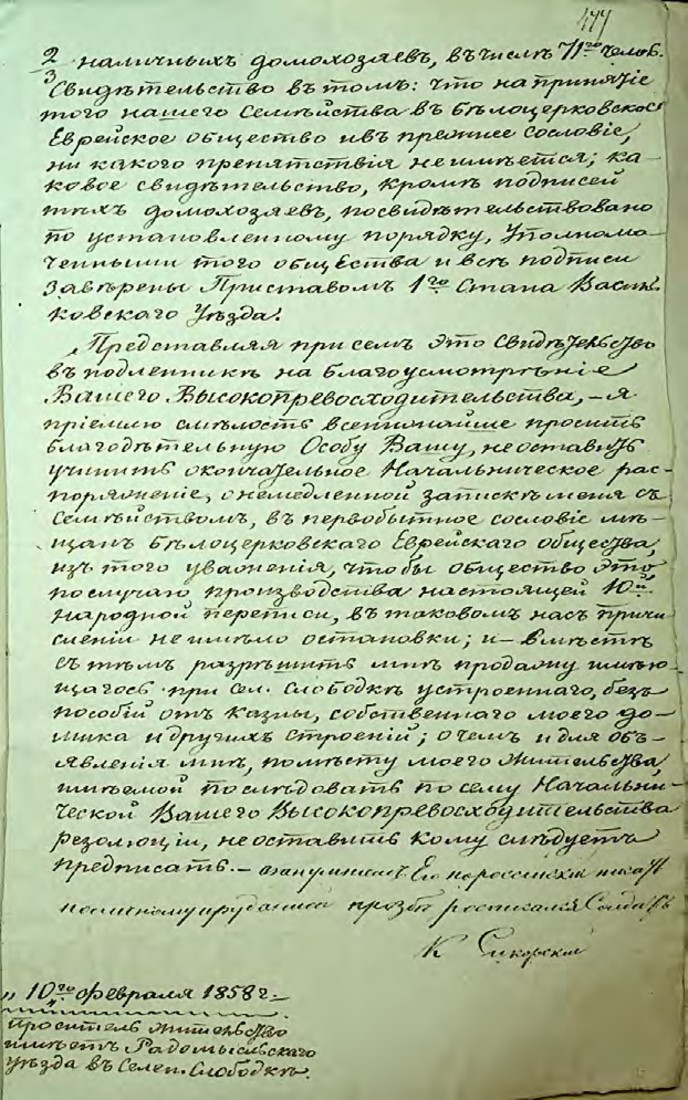 477
2/3 наличныхъ домохозяевъ, въ числѣ 71го челов.
Свидѣтельство въ томъ: что на принятіе
того нашего Семѣйства въ бѣлоцерковское
Еврейское общество и въ прежнее сословіе,
ни какого препятствія не имѣется; ка-
ковое свидѣтельство, кромѣ подписей
тѣхъ домохозяевъ, посвидѣтельствовано
по установленному порядку, Уполномо-
ченными того общества и всѣ подписи
завѣрены Приставомъ 1го Стана Василь-
ковскаго Уѣзда.
Представляя при семъ это Свидѣтельство
въ подленникѣ на благоусмотрѣніе
Вашего Высокопревосходительства, – я
пріемлю смѣлость всенижайше просить
благодѣтельную Особу Вашу, не оставить
учинить окончательное Начальническое рас-
поряженіе, о немедленной запискѣ меня съ
Семѣйствомъ, въ первобытное сословіе мѣ-
щанъ бѣлоцерковскаго Еврейскаго общества,
изъ того уваженія, чтобы общество это,
по случаю производства настоящей 10й
народной переписи, въ таковомъ насъ причи-
сленіи не имѣло остановки; и – вмѣстѣ
съ тѣмъ разрѣшить мнѣ продажу имѣю-
щагось при сел. Слободкѣ устроеннаго, безъ
пособій отъ казны, собственнаго моего до-
мика и другихъ строеній; о чемъ и для объ-
явленія мнѣ, по мѣсту моего жительства,
имѣемой послѣдовать по сему Начальни-
ческой Вашего Высокопревосходительства
резолюціи, не оставить кому слѣдуетъ
предписать. –
по личному прозбѣ росписался Солдатъ
К Сикорскій
„10го февраля 1858 г. –
Проситель жительство
имѣетъ Радомысльскаго
уѣзда въ Селен. Слободкѣ.